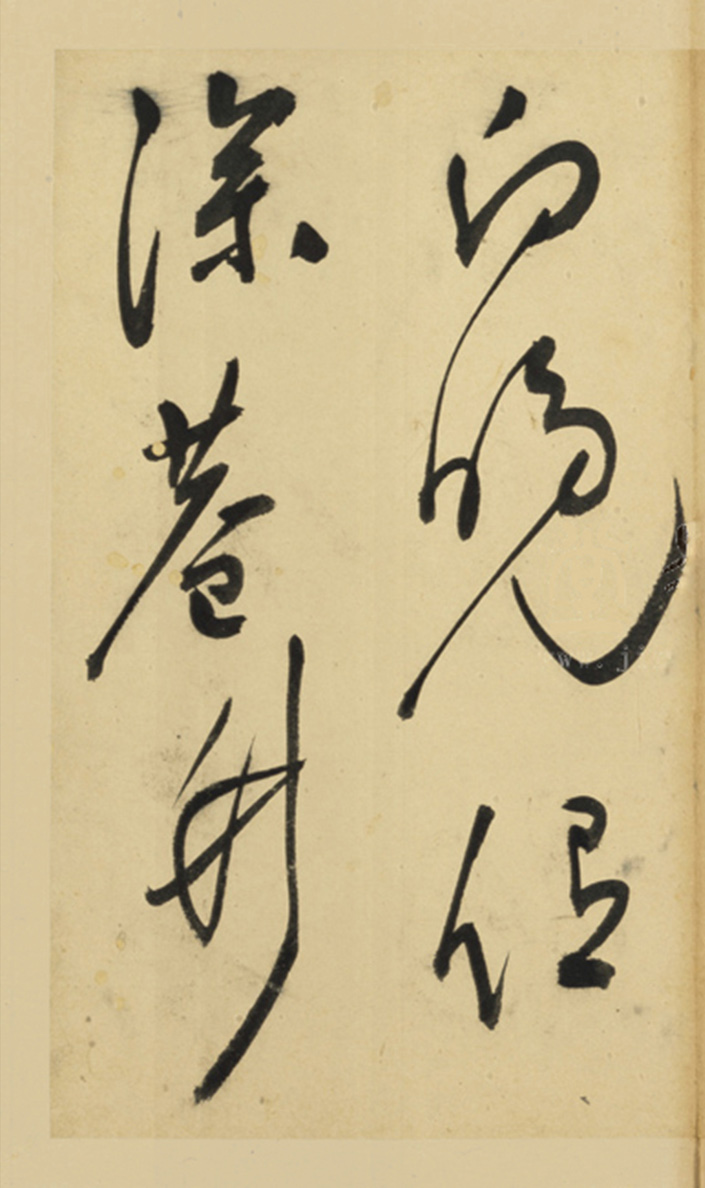 向晚但
深巷